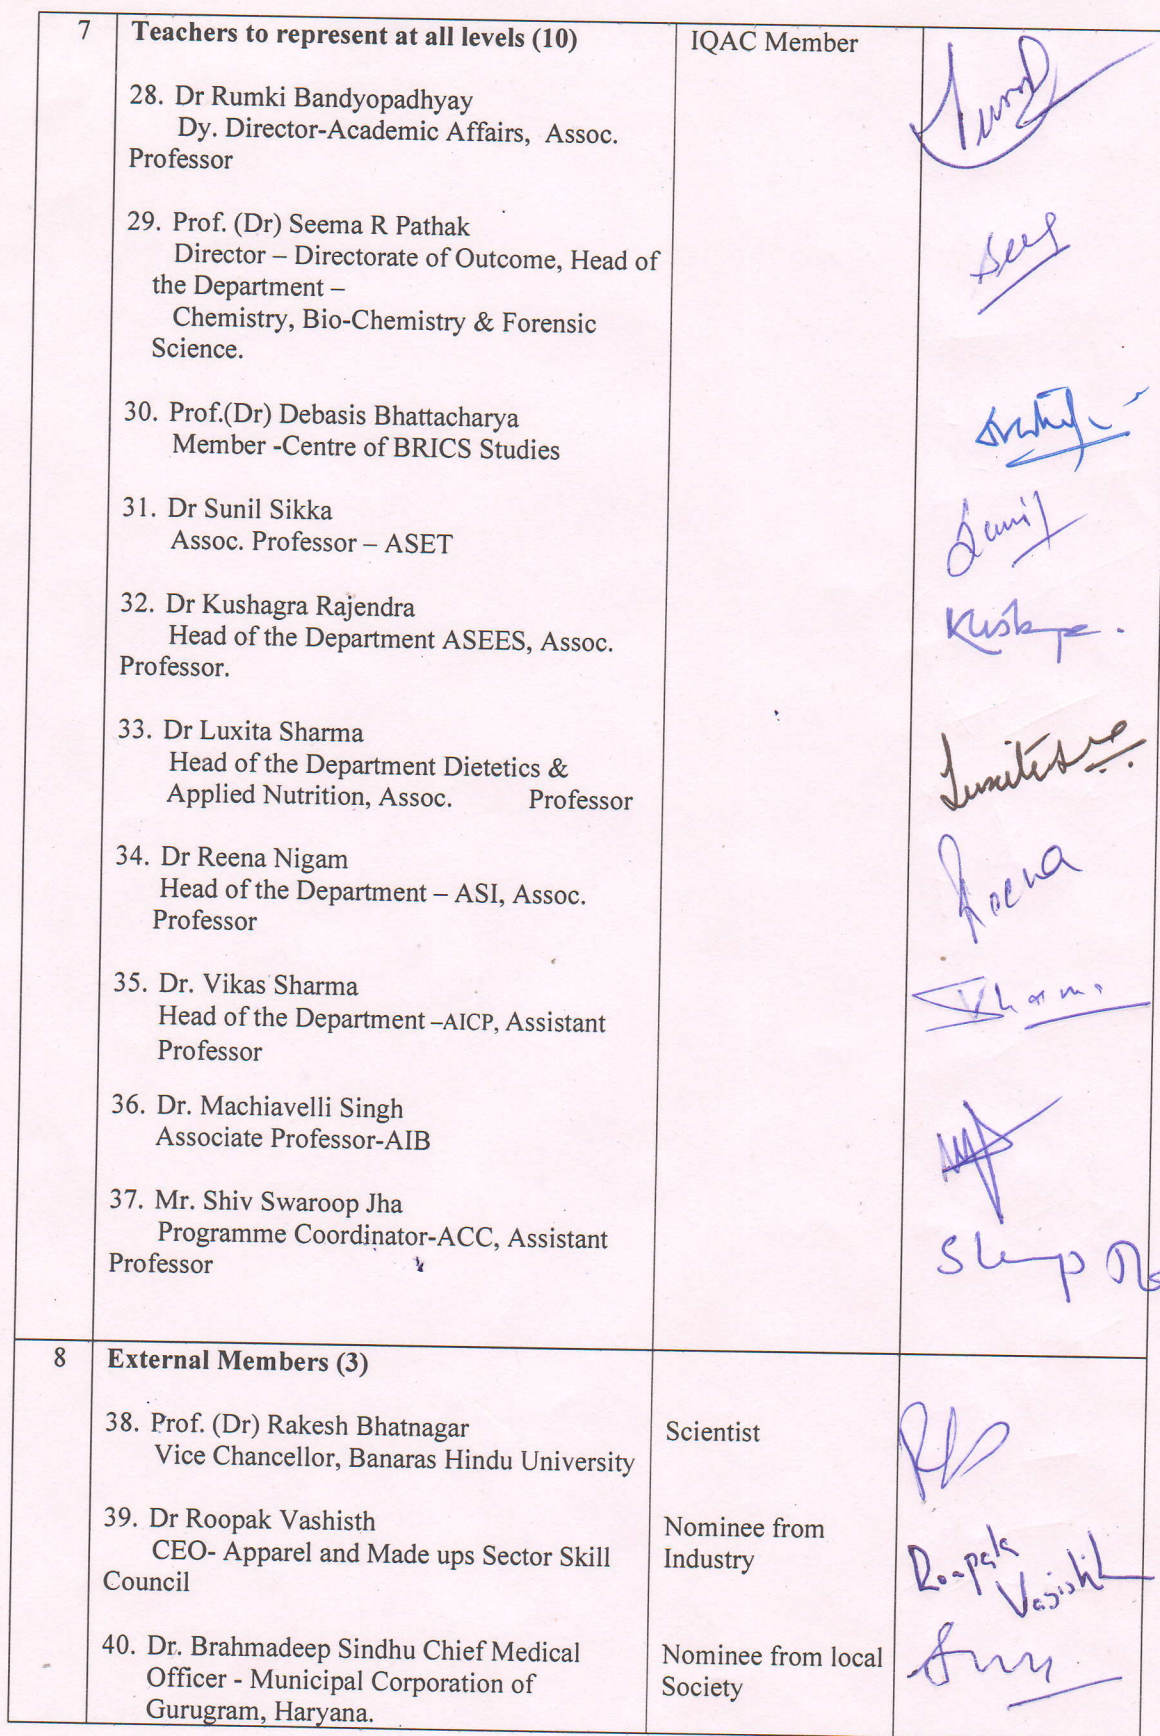 7 Teachers to represent at all levels (10) IQAC Member
28. Dr Rumki Bandyopadhyay
Dy. Director-Academic Affairs, Assoc.
Professor
29. Prof. (Dr) Seema R Pathak
Director – Directorate of Outcome, Head of
the Department –
Chemistry, Bio-Chemistry & Forensic
Science.
30. Prof.(Dr) Debasis Bhattacharya
Member -Centre of BRICS Studies
31. Dr Sunil Sikka
Assoc. Professor – ASET
32. Dr Kushagra Rajendra
Head of the Department ASEES, Assoc.
Professor.
33. Dr Luxita Sharma
Head of the Department Dietetics &
Applied Nutrition, Assoc. Professor
34. Dr Reena Nigam
Head of the Department – ASI, Assoc.
Professor
Reena
35. Dr. Vikas Sharma
Head of the Department –AICP, Assistant
Professor
36. Dr. Machiavelli Singh
Associate Professor-AIB
37. Mr. Shiv Swaroop Jha
Programme Coordinator-ACC, Assistant
Professor
8 External Members (3)
38. Prof. (Dr) Rakesh Bhatnagar Scientist
Vice Chancellor, Banaras Hindu University
39. Dr Roopak Vashisth Nominee from
CEO- Apparel and Made ups Sector Skill Industry
Council
Roopak
Vasisht
40. Dr. Brahmadeep Sindhu Chief Medical Nominee from local
Officer - Municipal Corporation of Society
Gurugram, Haryana.